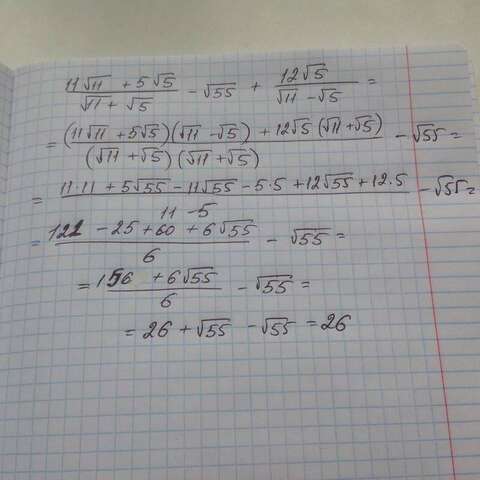 (11√11 + 5√5)/(√11 + √5) - √55 + 12√5/(√11 - √5) =
= ((11√11 + 5√5)(√11 - √5) + 12√5 (√11 + √5))/((√11 + √5)(√11 + √5)) - √55 =
= (11·11 + 5√55 - 11√55 - 5·5 + 12√55 + 12·5)/(11 - 5) - √55 =
= (121 - 25 + 60 + 6√55)/6 - √55 =
= (156 + 6√55)/6 - √55 =
= 26 + √55 - √55 = 26